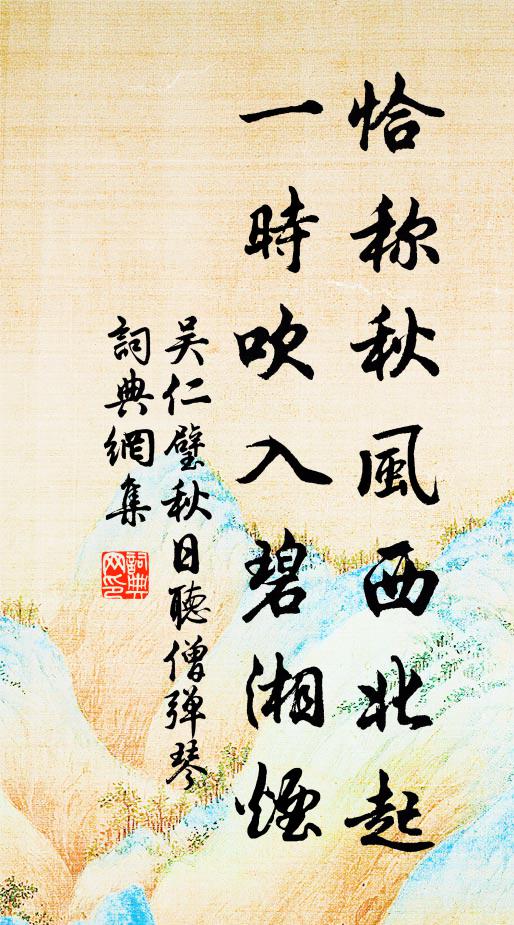 恰称秋風西北起
一時吹入碧湘煙
吴仁璧秋日聽僧弹琴
詞典網集
詞典
网印